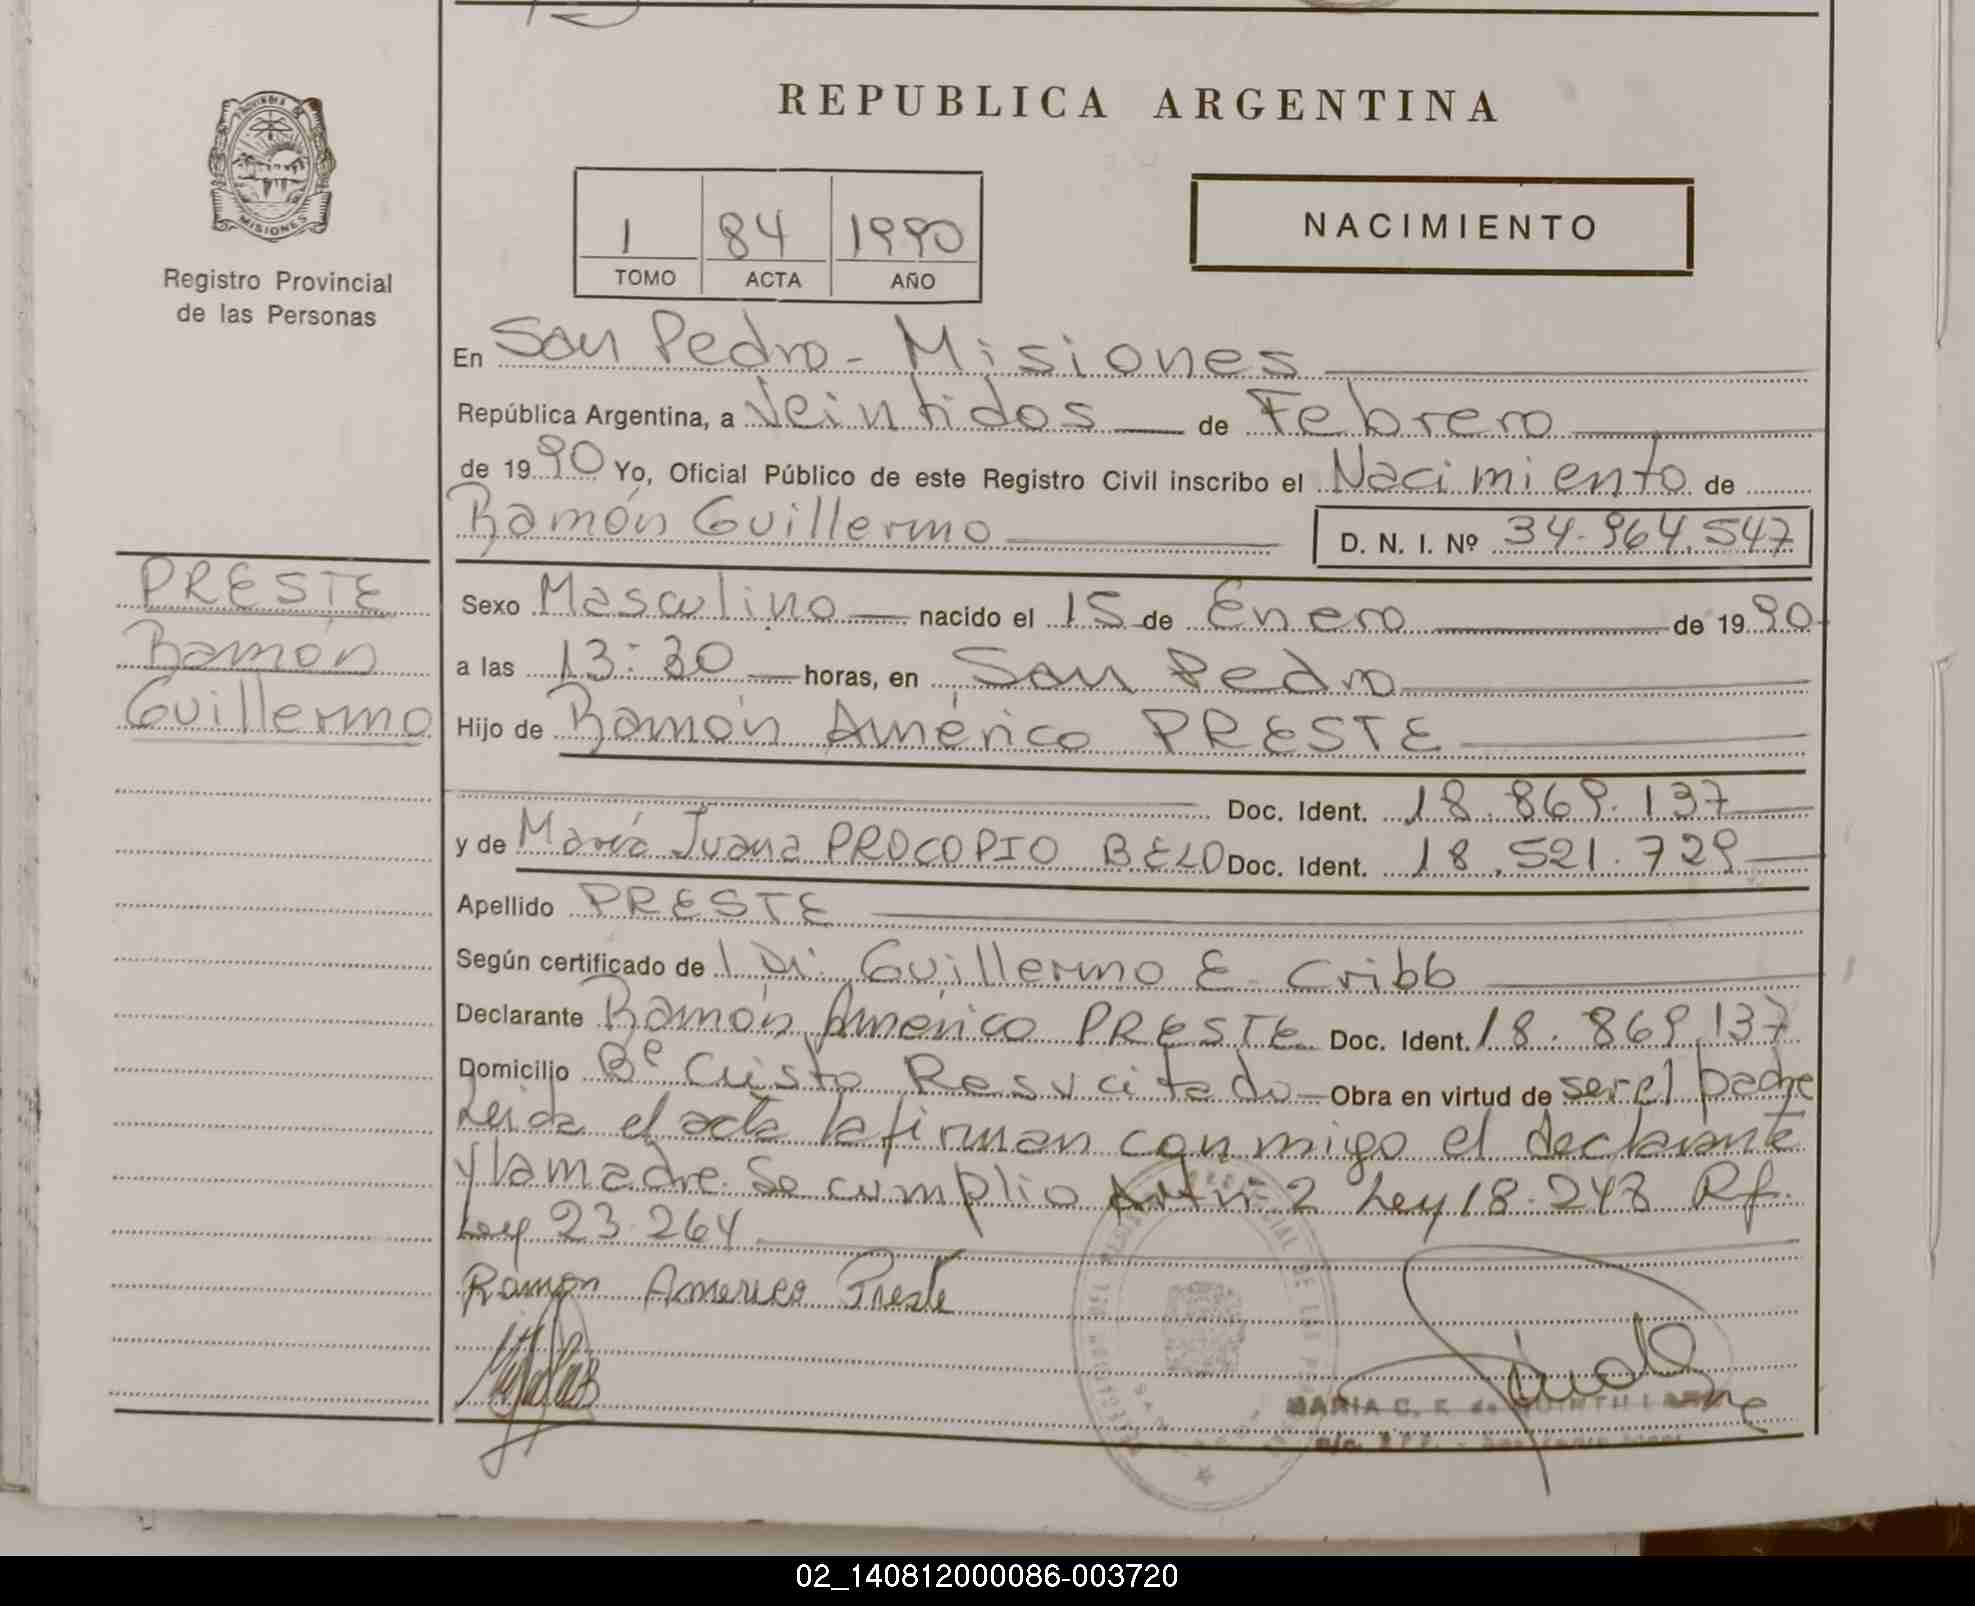 REPUBLICA ARGENTINA
PROVINCIA DE
MISIONES
Registro Provincial
de las Personas
1 84 1990
TOMO ACTA AÑO
NACIMIENTO
En San Pedro - Misiones
República Argentina, a Veintidos de Febrero
de 1990 Yo, Oficial Público de este Registro Civil inscribo el Nacimiento de
Ramón Guillermo
D. N. I. Nº 34.964.547
PRESTE
Ramón
Guillermo
Sexo Masculino nacido el 15 de Enero de 1990
a las 13:30 horas, en San Pedro
Hijo de Ramón Américo PRESTE
Doc. Ident. 18.869.137
y de María Juana PROCOPIO BELO Doc. Ident. 18.521.729
Apellido PRESTE
Según certificado de Dr. Guillermo E. Cribb
Declarante Ramón Américo PRESTE Doc. Ident. 18.869.137
Domicilio Bº Cristo Resucitado Obra en virtud de ser el padre
Leida el acta la firman conmigo el declarante
y la madre. Se cumplio Art nº 2 Ley 18.248 Rf.
Ley 23.264
Ramon Americo Preste
MARIA C.
02_140812000086-003720